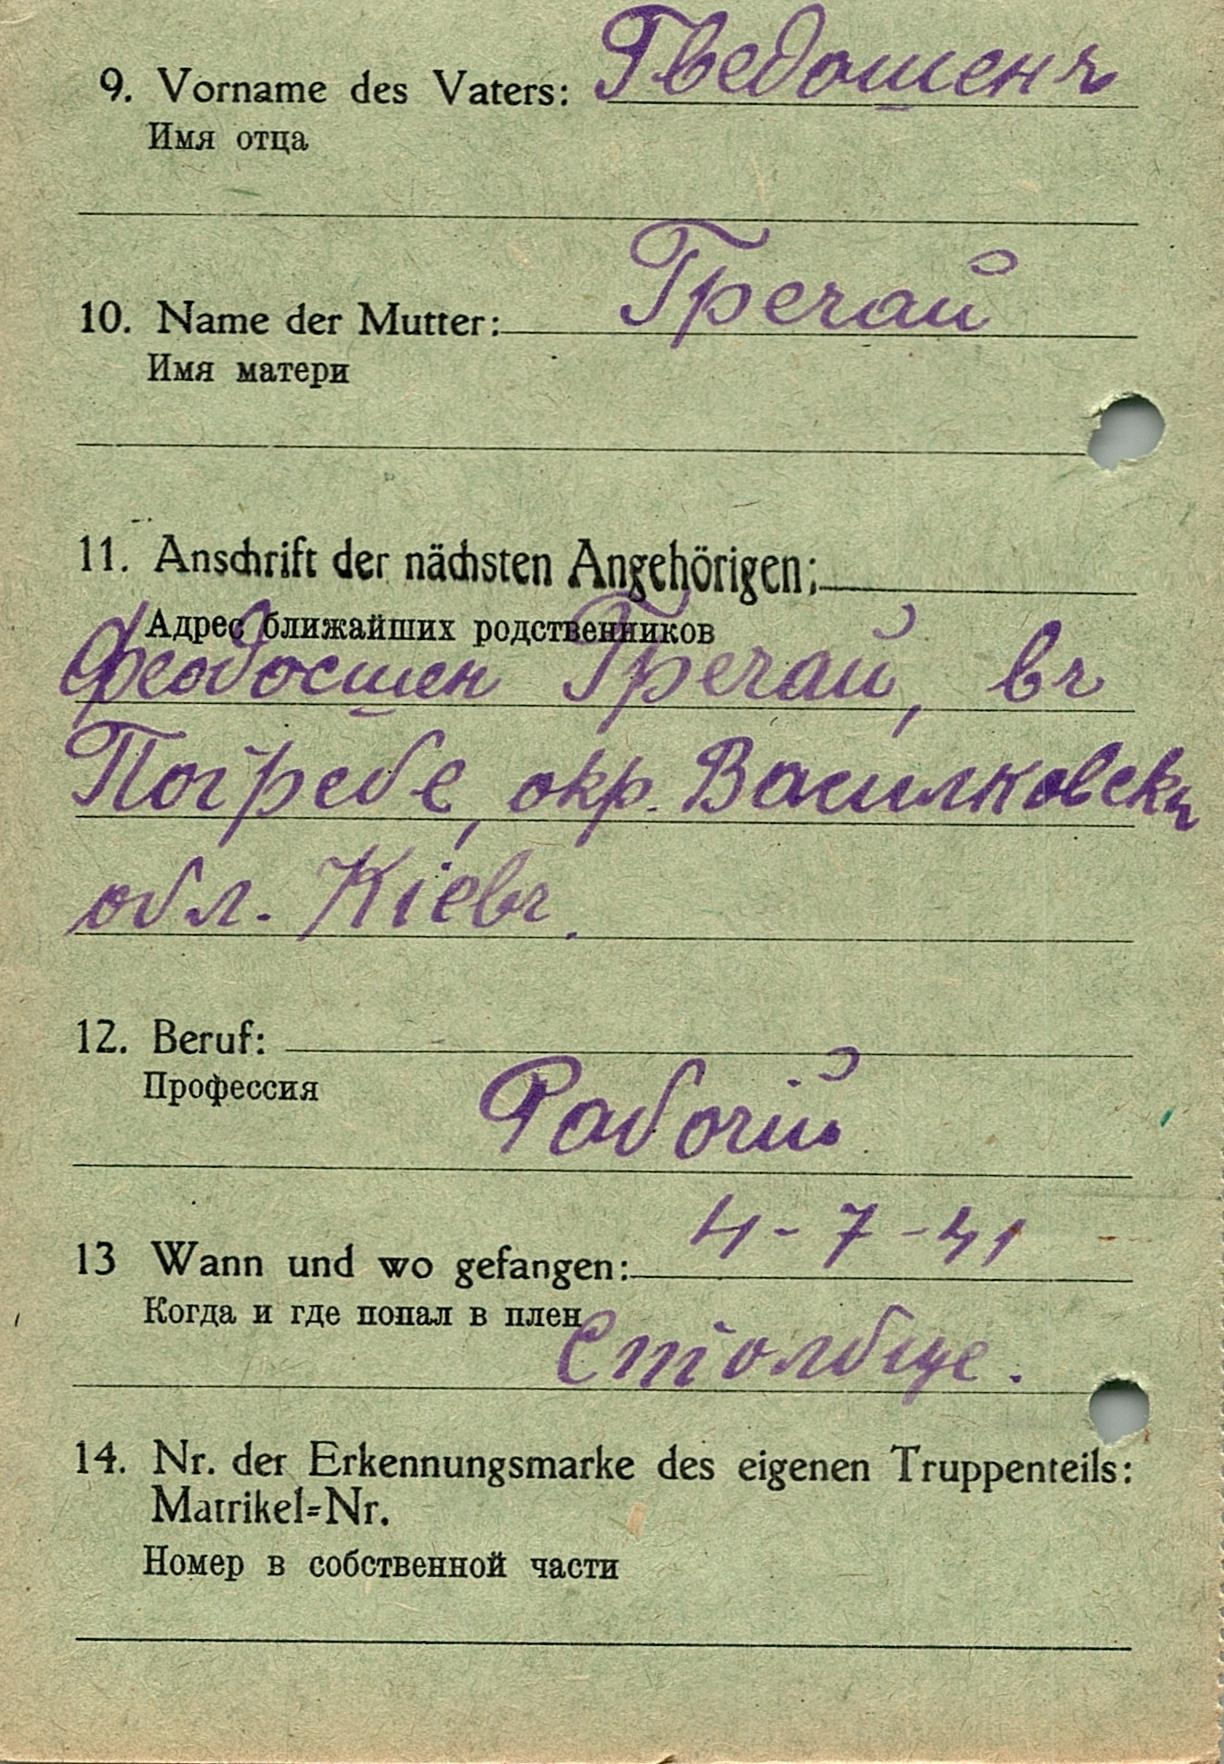 9. Vorname des Vaters: Гведошенъ
Имя отца
10. Name der Mutter: Гречай
Имя матери
11. Anschrift der nächsten Angehörigen:
Адрес ближайших родственников
Феодосшен Гречай, въ
Погребе, окр. Василковскъ
обл. Кіевъ.
12. Beruf:
Профессия
Рабочій
13 Wann und wo gefangen: 4-7-41
Когда и где попал в плен
Столбце.
14. Nr. der Erkennungsmarke des eigenen Truppenteils:
Matrikel=Nr.
Номер в собственной части